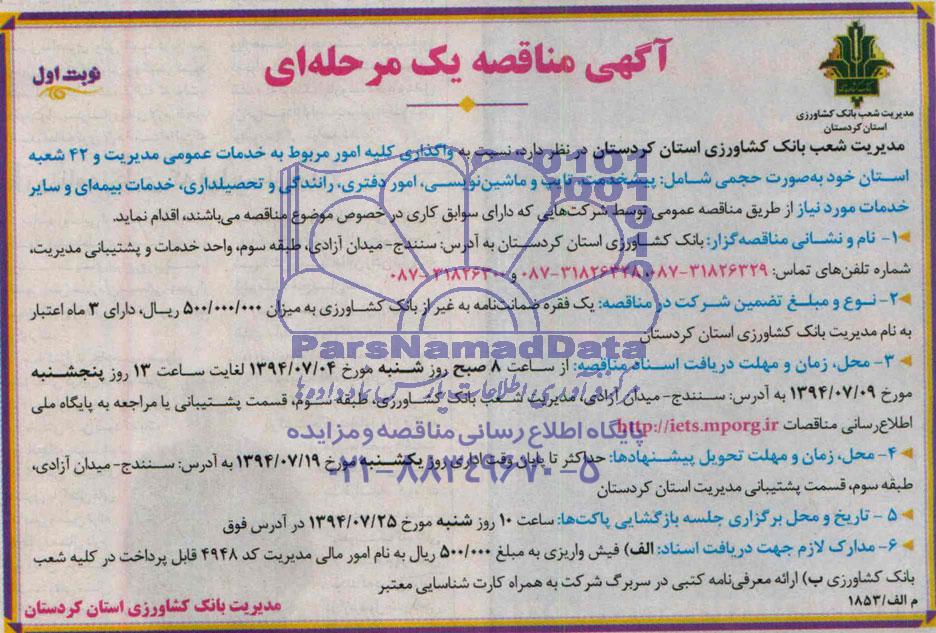 آگهی مناقصه یک مرحله‌ای
نوبت اول
مدیریت شعب بانک کشاورزی
استان کردستان
مدیریت شعب بانک کشاورزی استان کردستان در نظر دارد، نسبت به واگذاری کلیه امور مربوط به خدمات عمومی مدیریت و ۴۲ شعبه
استان خود به‌صورت حجمی شامل: پیشخدمت، تایپ و ماشین‌نویسی، امور دفتری، رانندگی و تحصیلداری، خدمات بیمه‌ای و سایر
خدمات مورد نیاز از طریق مناقصه عمومی توسط شرکت‌هایی که دارای سوابق کاری در خصوص موضوع مناقصه می‌باشند، اقدام نماید.
۱- نام و نشانی مناقصه‌گزار: بانک کشاورزی استان کردستان به آدرس: سنندج- میدان آزادی، طبقه سوم، واحد خدمات و پشتیبانی مدیریت،
شماره تلفن‌های تماس: ۳۱۸۲۶۳۲۹-۰۸۷، ۳۱۸۲۶۳۲۸-۰۸۷ و ۳۱۸۲۶۳۰۰-۰۸۷
۲- نوع و مبلغ تضمین شرکت در مناقصه: یک فقره ضمانت‌نامه به غیر از بانک کشاورزی به میزان ۵۰۰/۰۰۰/۰۰۰ ریال، دارای ۳ ماه اعتبار
به نام مدیریت بانک کشاورزی استان کردستان
ParsNamadData
۳- محل، زمان و مهلت دریافت اسناد مناقصه: از ساعت ۸ صبح روز شنبه مورخ ۱۳۹۴/۰۷/۰۴ لغایت ساعت ۱۳ روز پنجشنبه
مورخ ۱۳۹۴/۰۷/۰۹ به آدرس: سنندج- میدان آزادی، مدیریت شعب بانک کشاورزی، طبقه سوم، قسمت پشتیبانی یا مراجعه به پایگاه ملی
اطلاع‌رسانی مناقصات http://iets.mporg.ir
پایگاه اطلاع رسانی مناقصه و مزایده
۴- محل، زمان و مهلت تحویل پیشنهادها: حداکثر تا پایان وقت اداری روز یکشنبه مورخ ۱۳۹۴/۰۷/۱۹ به آدرس: سنندج- میدان آزادی،
۰۲۱-۸۸۳۴۹۶۷۰-۵
طبقه سوم، قسمت پشتیبانی مدیریت استان کردستان
۵ - تاریخ و محل برگزاری جلسه بازگشایی پاکت‌ها: ساعت ۱۰ روز شنبه مورخ ۱۳۹۴/۰۷/۲۵ در آدرس فوق
۶- مدارک لازم جهت دریافت اسناد: الف) فیش واریزی به مبلغ ۵۰۰/۰۰۰ ریال به نام امور مالی مدیریت کد ۴۹۴۸ قابل پرداخت در کلیه شعب
بانک کشاورزی ب) ارائه معرفی‌نامه کتبی در سربرگ شرکت به همراه کارت شناسایی معتبر
م الف/۱۸۵۳
مدیریت بانک کشاورزی استان کردستان